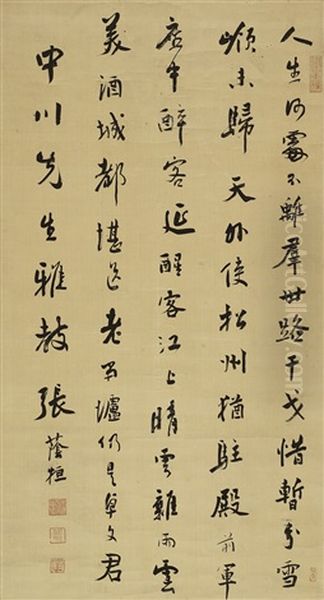 人生何處不離羣世路干戈惜暫分雪
嶺未歸天外使松州猶駐殿前軍
座中醉客延醒客江上晴雲雜雨雲
美酒城都堪送老當壚仍是卓文君
中川先生雅教 張蔭桓